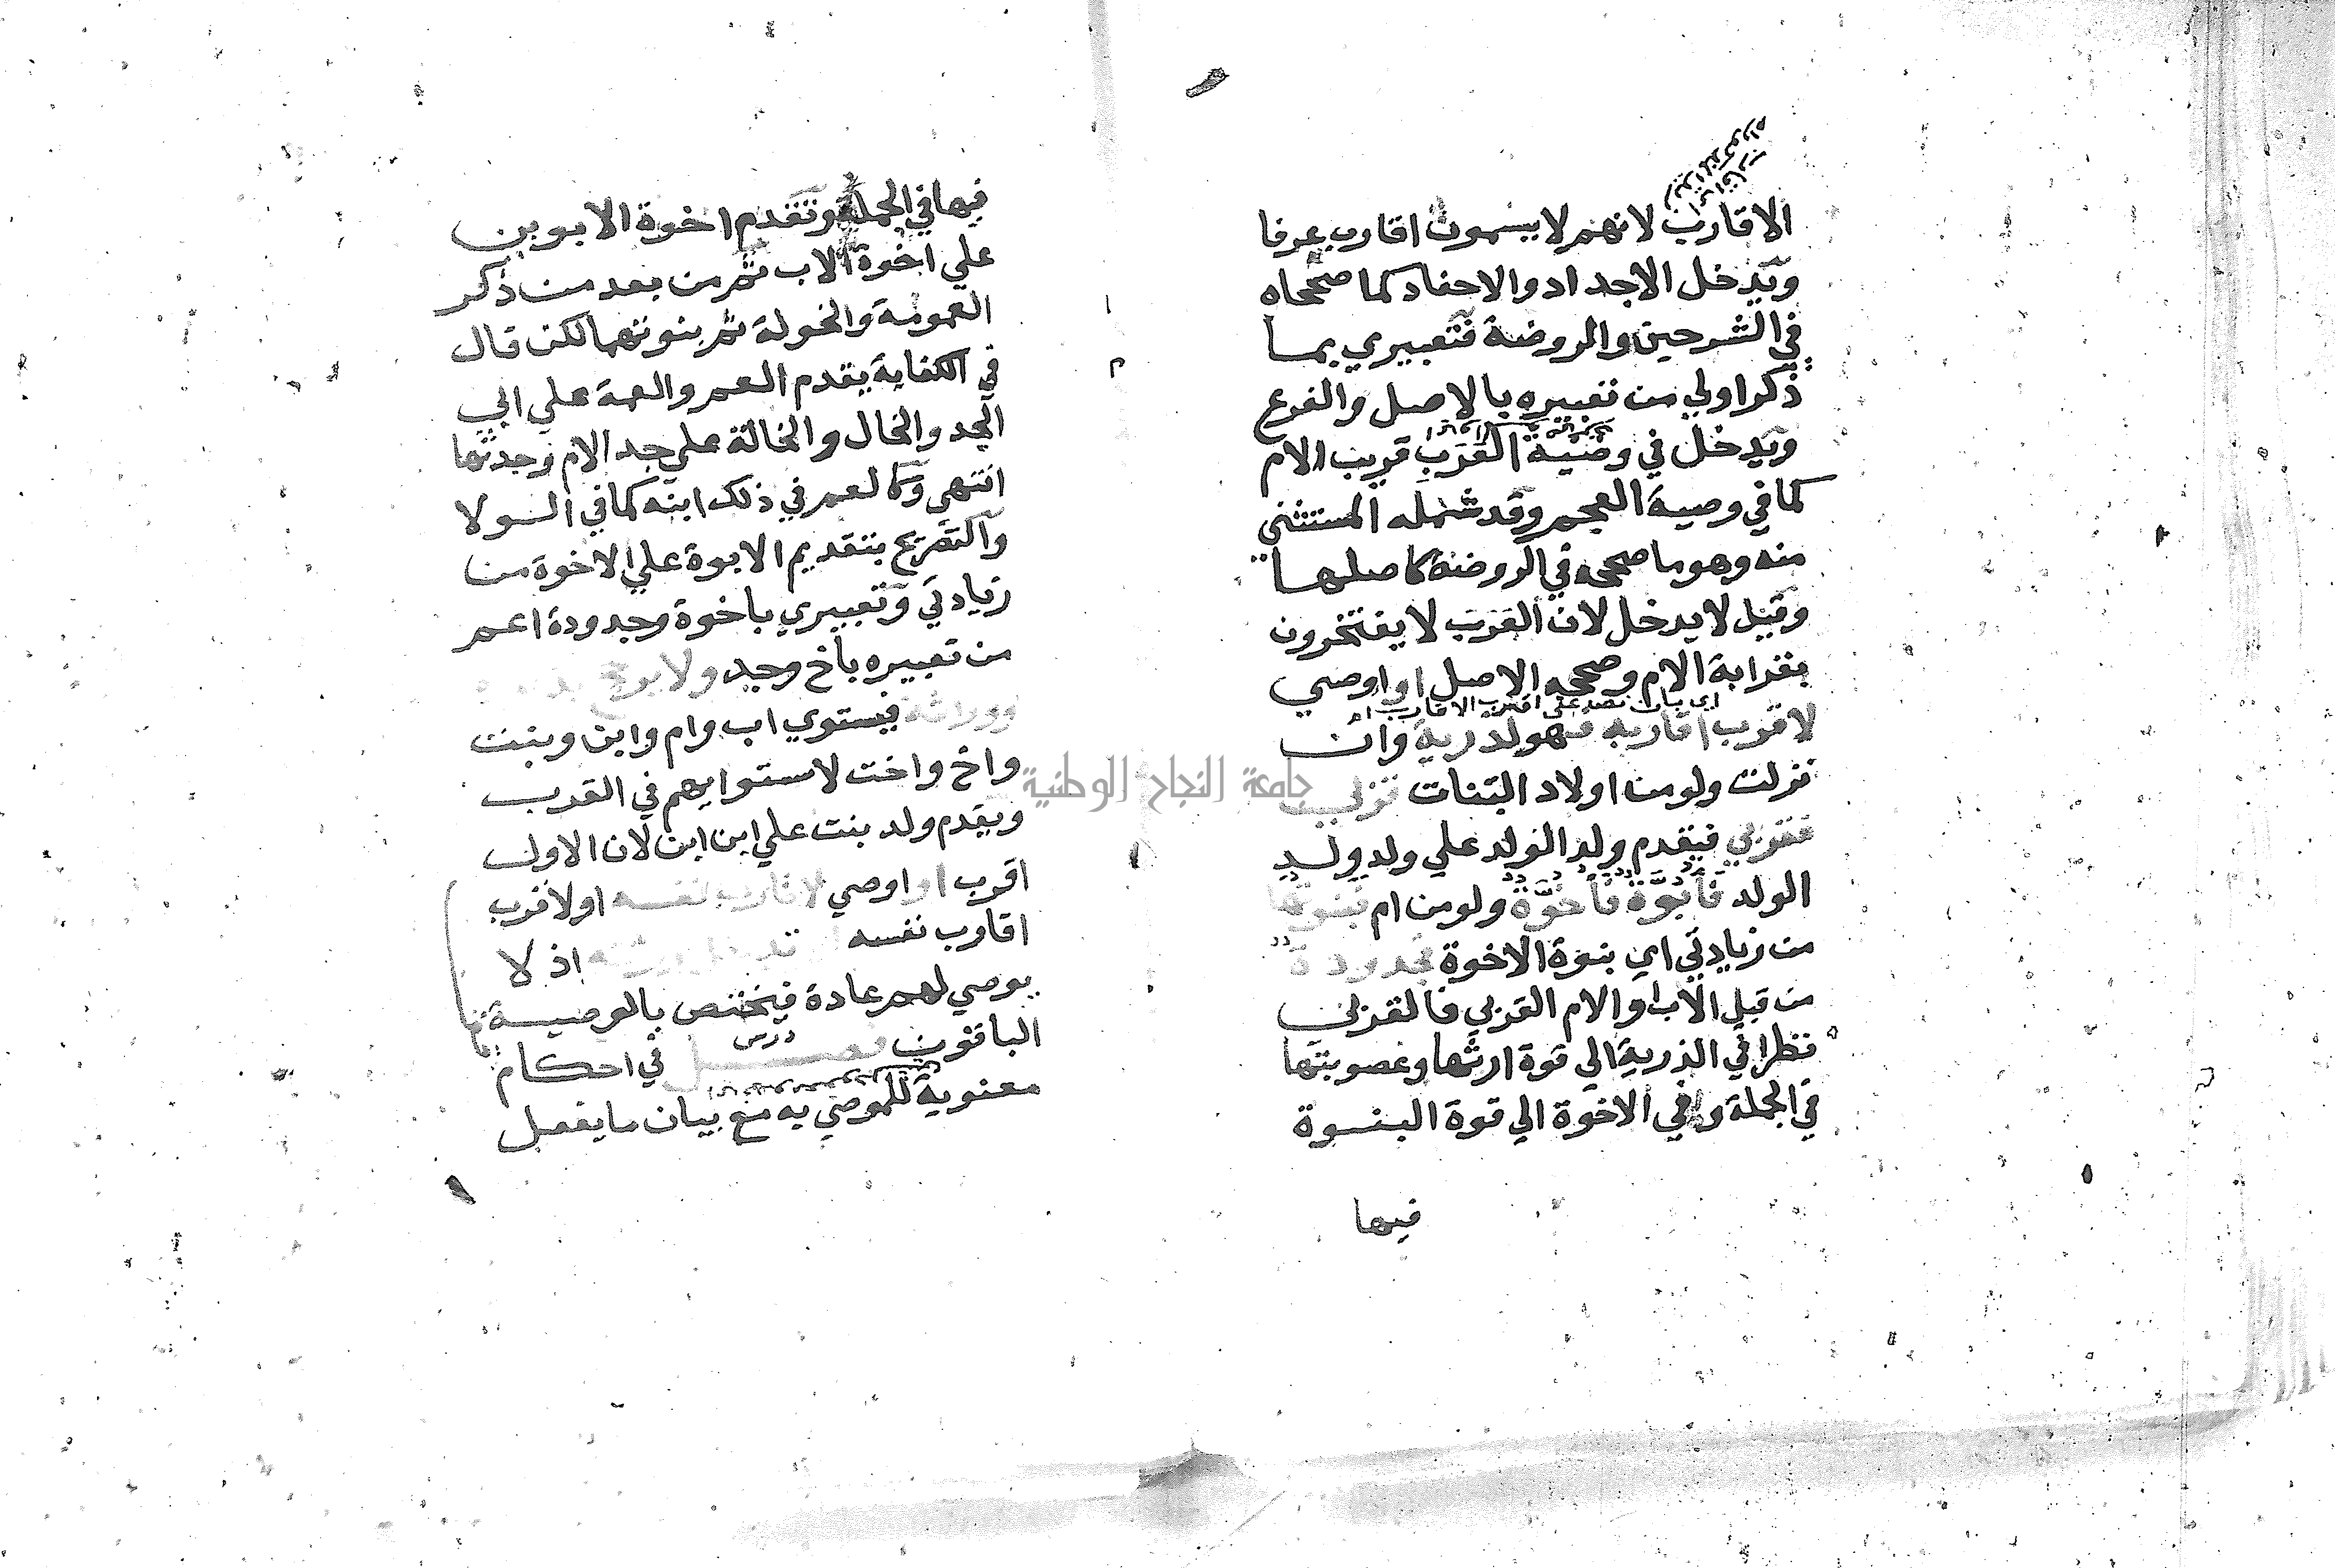 الاقارب لانهم لا يسمون اقارب عرفا
ويدخل الاجداد والاحفاد كما صححاه
في الشرحين والروضة فتعبيري بما
ذكر اولي من تعبيره بالاصل والفرع
ويدخل في وصية العرب قريب الام
كما في وصية العجم وقد شمله المستثني
منه وهو ما صححه في الروضة كاصلها
وقيل لا يدخل لان العرب لا يفتخرون
بقرابة الام وصححه الاصل او اوصي
اي بان نص علي اقرب الاقارب اه
لاقرب اقاربه فهو لذرية وان
نزلت ولو من اولاد البنات قربي
فقربي فيقدم ولد الولد علي ولد ولد
الولد فأبوة فأخوة ولو من ام فبنوتها
من زيادتي اي بنوة الاخوة فجدودة
من قبل الاب او الام القربي فالقربي
نظرا في الذرية الي قوة ارثها وعصوبتها
في الجملة وفي الاخوة الي قوة البنوة
فيها
فيها في الجملة وتقدم اخوة الابوين
علي اخوة الاب ثم من بعد من ذكر
العمومة والخولة ثم بنوتهما لكن قال
في الكفاية يقدم العم والعمة علي ابي
الجد والخال والخالة علي جد الام وجدتها
انتهي وكالعم في ذلك ابنه كما في الولا
والتصريح بتقديم الابوة علي الاخوة من
زيادتي وتعبيري باخوة وجدودة اعم
من تعبيره بأخ وجد ولا يرجح
ووراثة فيستوي اب وام وابن وبنت
واخ واخت لاستوايهم في القرب
ويقدم ولد بنت علي ابن ابن لان الاول
اقرب او اوصي لاقارب نفسه او لاقرب
اقارب نفسه ورثته اذ لا
يوصي لهم عادة فيختص بالوصية
الباقون فصل في احكام
درس
معنوية للموصي به مع بيان ما يفعل
جامعة النجاح الوطنية